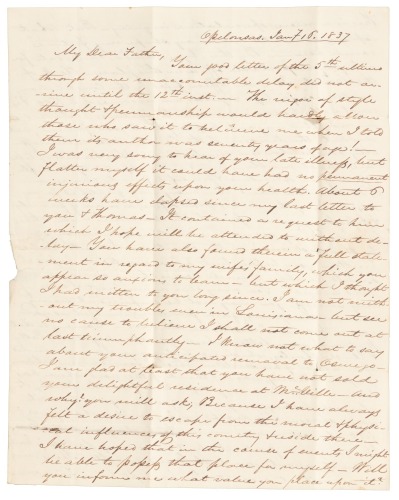 Opelousas, Jan'y 16. 1837
My Dear Father,
Your good letter of the 5th ultimo
through some unaccountable delay did not ar-
rive until the 12th inst. The vigor of style
thought & penmanship would hardly allow
those who saw it to believe me when I told
them its author was seventy years of age! —
I was very sorry to hear of your late illness, but
flatter myself it could have had no permanent
injurious effects upon your health. About 6
weeks have elapsed since my last letter to
you & Thomas — It contained a request to him
which I hope will be attended to without de-
lay — You have also found therein a full state-
ment in regard to my wife's family, which you
appear so anxious to learn — but which I thought
I had written to you long since. I am not with
out my troubles even in Louisiana — but see
no cause to believe I shall not come out at
last triumphantly — I know not what to say
about your anticipated removal to Oswego —
I am glad at least that you have not sold
your delightful residence at — And
why? you will ask; Because I have always
felt a desire to escape from the moral & physi-
cal influences of this country & reside there —
I have hoped that in the course of events I might
be able to possess that place for myself — Will
you inform me what value you place upon it?